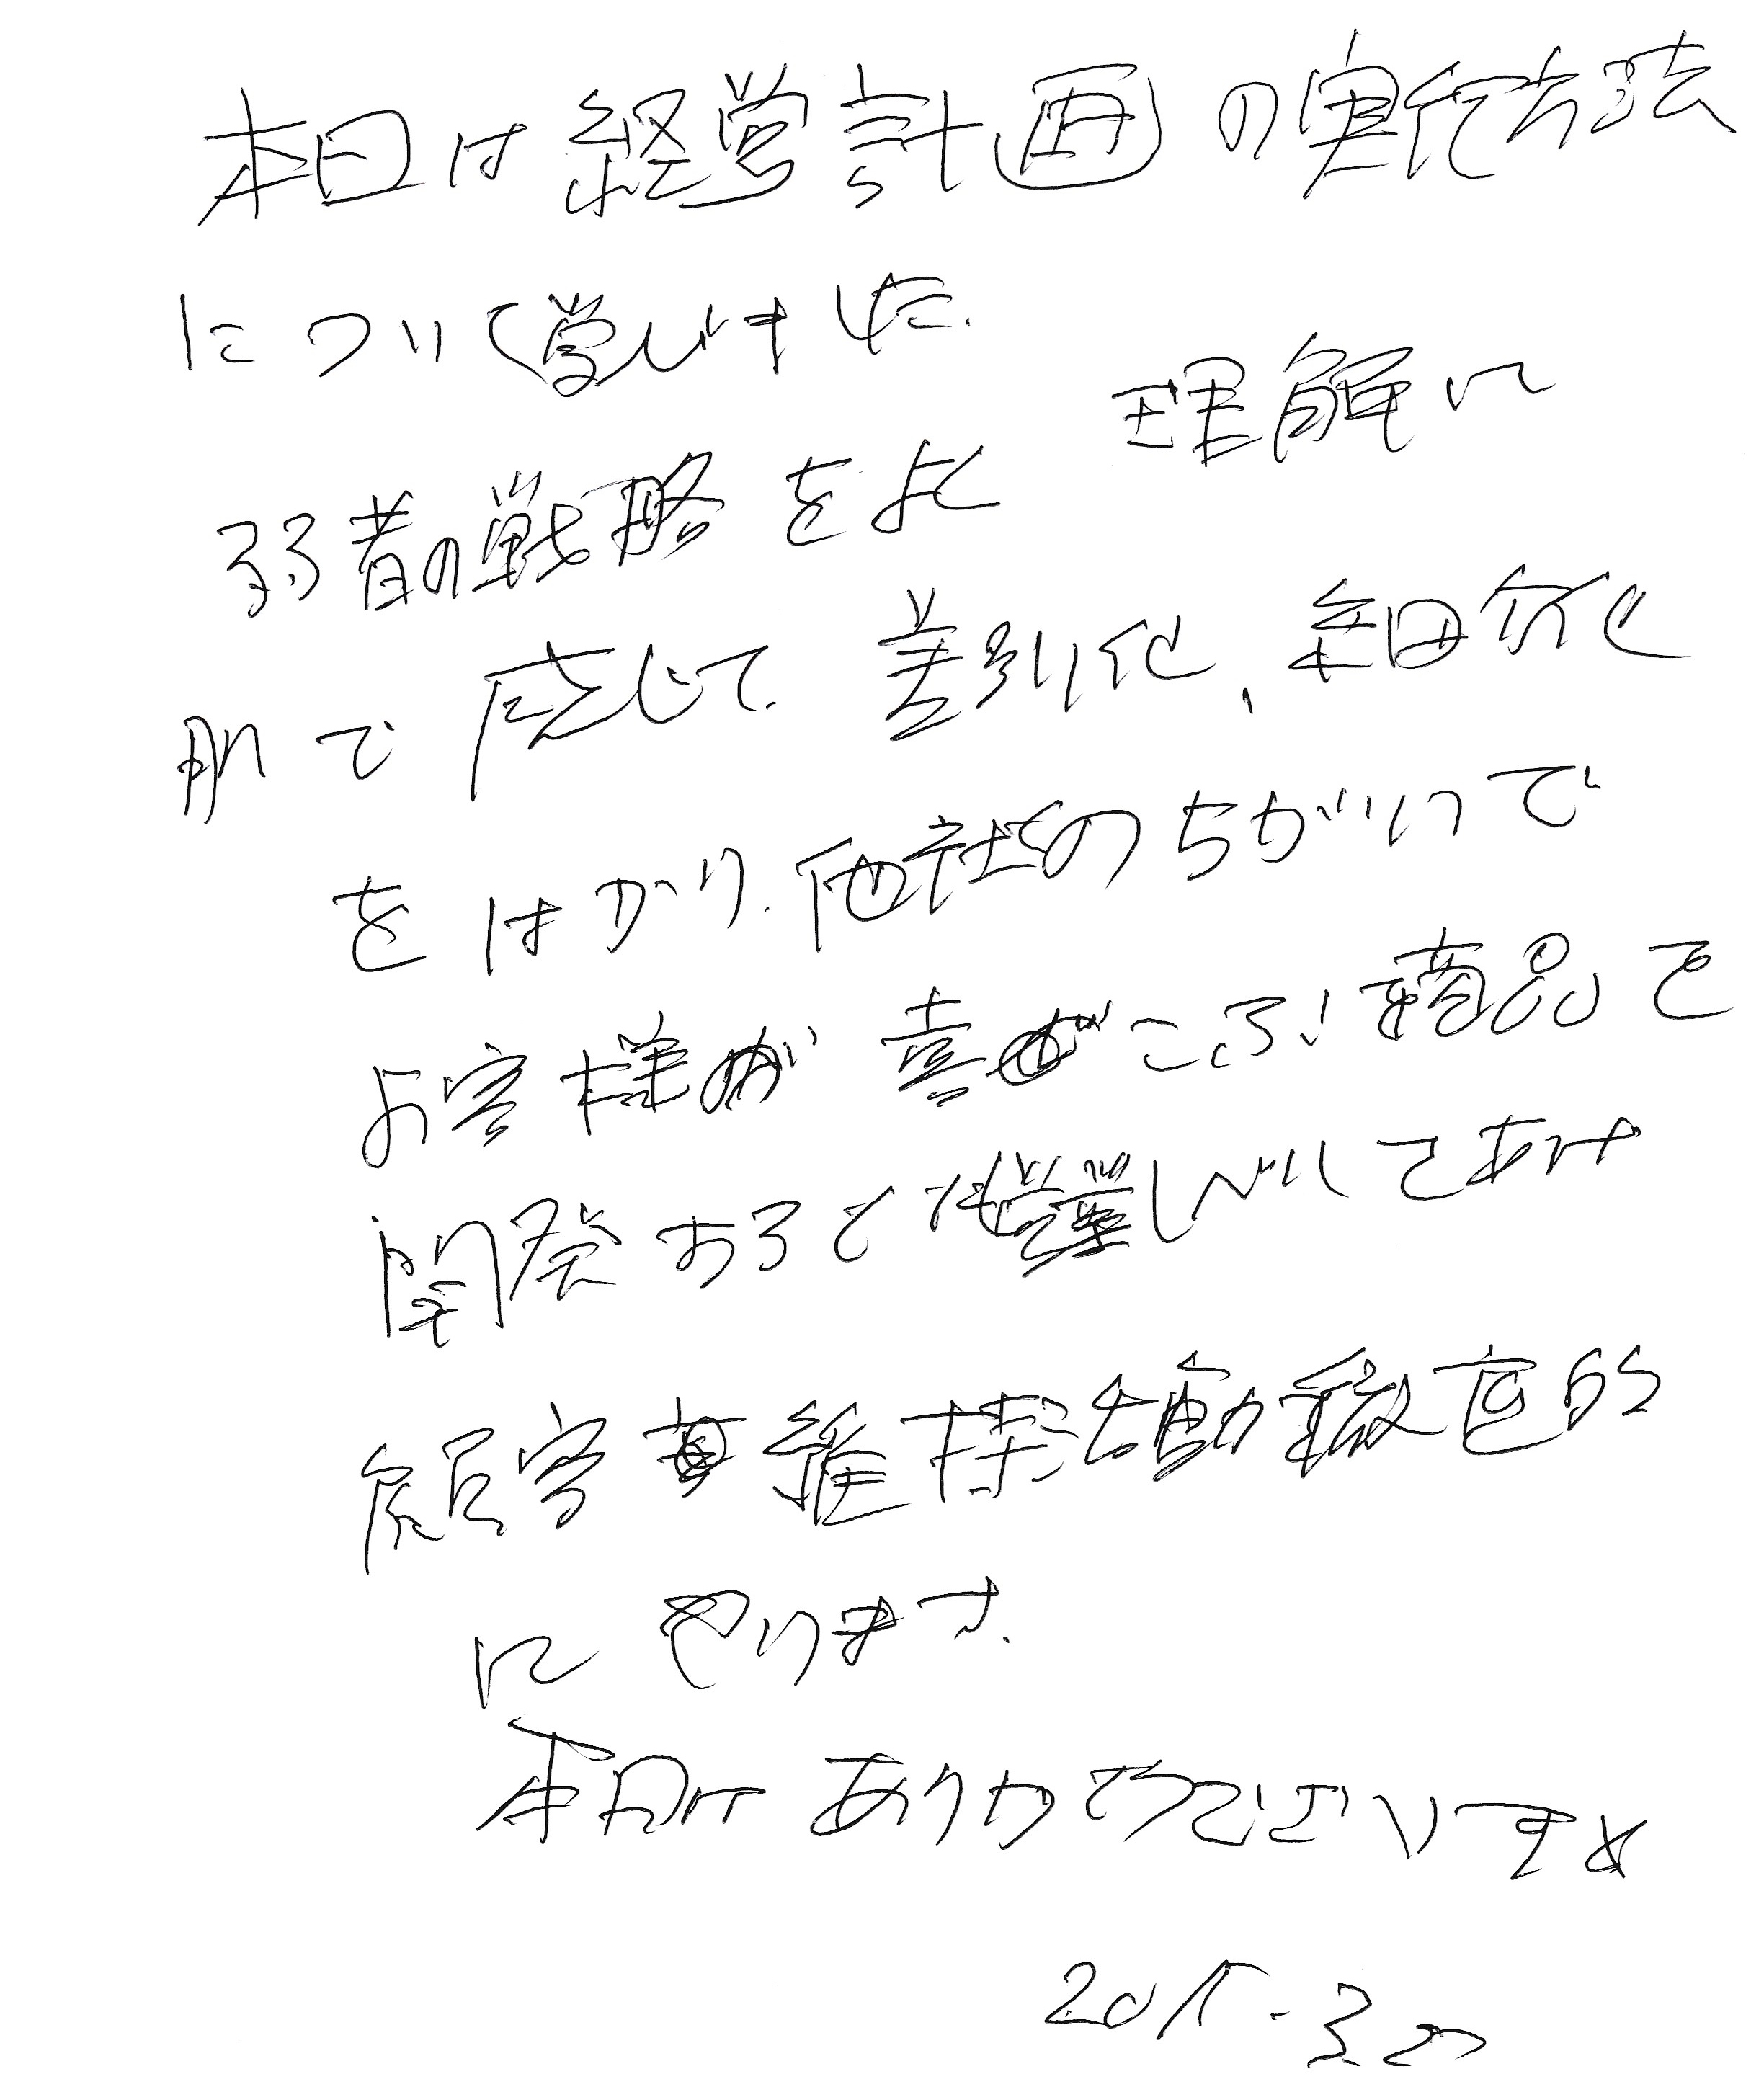 本日は経営計画の実行方法
について学びました.
弱者の戦略をよく 理解し
肌で感じて. 差別化、細分化
をはかり. 他社のちがいで
お客様が喜こぶ!商品を
開発する
顧客 維持活動徹底的
にやります.
本日はありがとうございます
2015.3.20